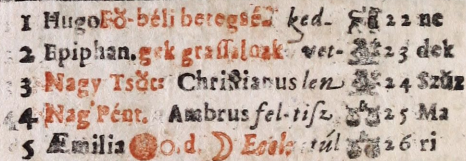 1 Hugo Fö-béli betegség ked- 22 ne
2 Epiphan. gek grassalnak vet- 23 dek
3 Nagy Tsöt: Christianus len 24 Szűz
4 Nag' Pént. Ambrus fel-tisz 25 Ma
5 Æmilia 0. d. túl 26 ri